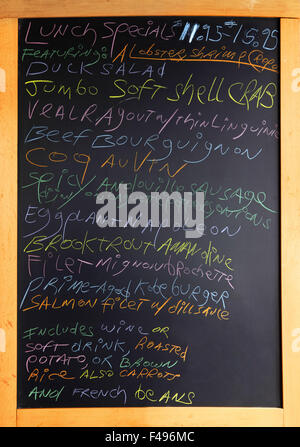 Lunch Specials $11.95-$15.95
Featuring: A Lobster, Shrimp Crepe
Duck Salad
Jumbo Soft Shell CRAB
Veal Ragout w/ thin Linguinie
Beef Bourguignon
Coq au Vin
Spicy Andouille Sausage
Eggplant Napoleon
Brook trout Amandine
Filet Mignon Brochette
Prime-Aged Kobe burger
Salmon filet w/ dill sauce
Includes wine or
soft drink, Roasted
potato, or Brown
Rice also carrots
And french beans
alamy
Image ID: F496MC
www.alamy.com